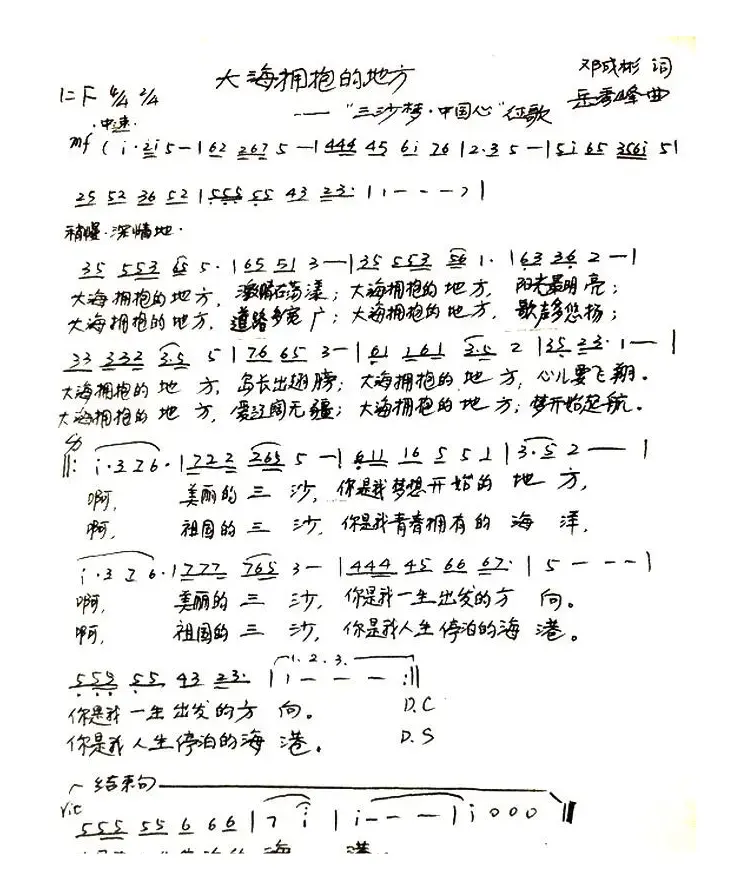 大海拥抱的地方
邓成彬 词
1=F 4/4 2/4
——"三沙梦·中国心"征歌
岳秀峰 曲
·中速·
mf ( i · 2i 5 - | 62 267 5 - | 444 45 6i 76 | 2·3 5 - | 5i 65 356i 5 |
25 52 36 52 | 555 55 43 23· | 1 - - - ) |
稍慢·深情地·
35 553 65 5· | 65 51 3 - | 35 553 56 1· | 63 36 2 - |
大海拥抱的地方，激情在荡漾；大海拥抱的地方，阳光最明亮；
大海拥抱的地方，道路多宽广；大海拥抱的地方，歌声多悠扬；
33 332 3·5 5 | 76 65 3 - | 61 161 3·5 2 | 35 23· 1 - - |
大海拥抱的地方，岛长出翅膀；大海拥抱的地方，心儿要飞翔。
大海拥抱的地方，爱辽阔无疆；大海拥抱的地方；梦开始起航。
||: i·3 76· | 722 265 5 - | 611 16 5 5 1 | 3·5 2 - - |
啊，美丽的三沙，你是我梦想开始的地方，
啊，祖国的三沙，你是我青春拥有的海洋，
i·3 76· | 777 765 3 - | 444 45 66 67· | 5 - - - |
啊，美丽的三沙，你是我一生出发的方向。
啊，祖国的三沙，你是我人生停泊的海港。
1. 2. 3.
555 55 43 23· | i - - - :||
你是我一生出发的方向。 D.C
你是我人生停泊的海港。 D.S
结束句
rit
555 55 6 6 6 | 7 i | i - - - | i 0 0 0 ||